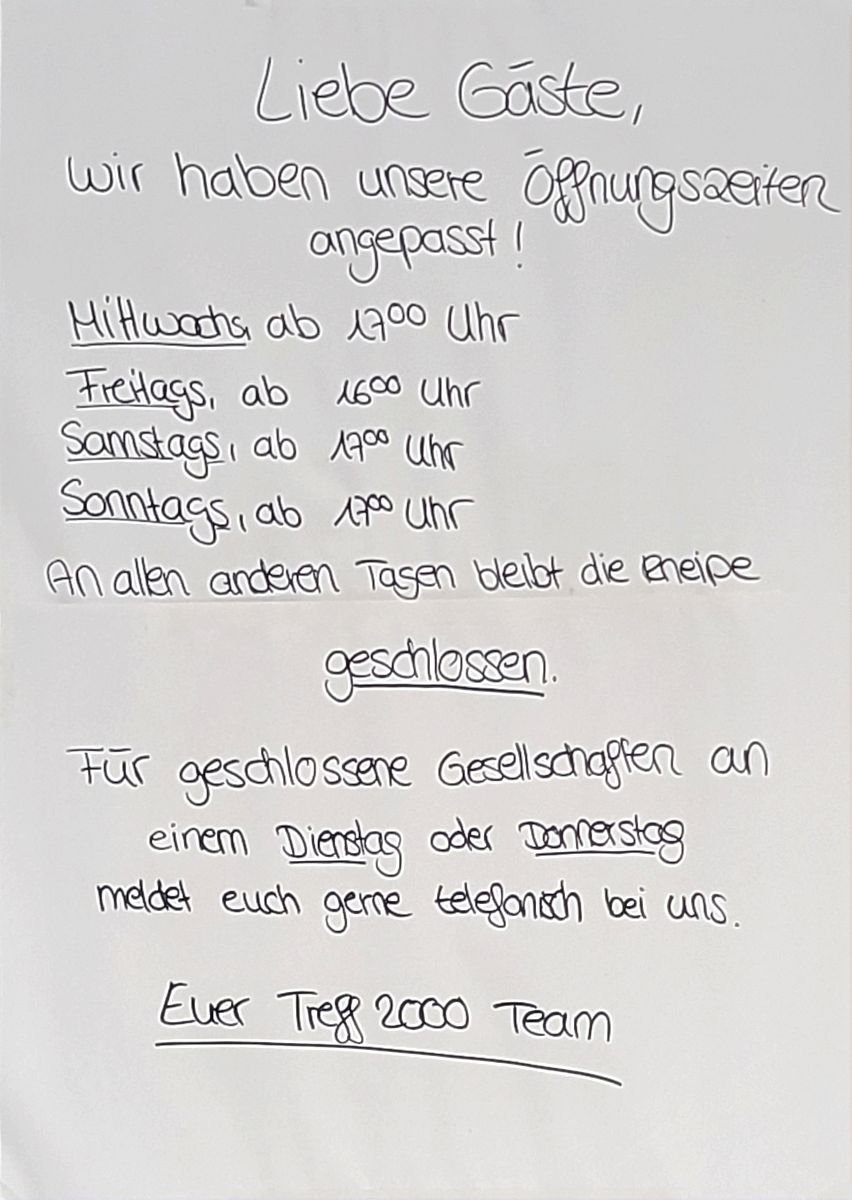 Liebe Gäste,
wir haben unsere Öffnungszeiten
angepasst!
Mittwochs, ab 17⁰⁰ Uhr
Freitags, ab 16⁰⁰ Uhr
Samstags, ab 17⁰⁰ Uhr
Sonntags, ab 17⁰⁰ Uhr
An allen anderen Tagen bleibt die Kneipe
geschlossen.
Für geschlossene Gesellschaften an
einem Dienstag oder Donnerstag
meldet euch gerne telefonisch bei uns.
Euer Treff 2000 Team